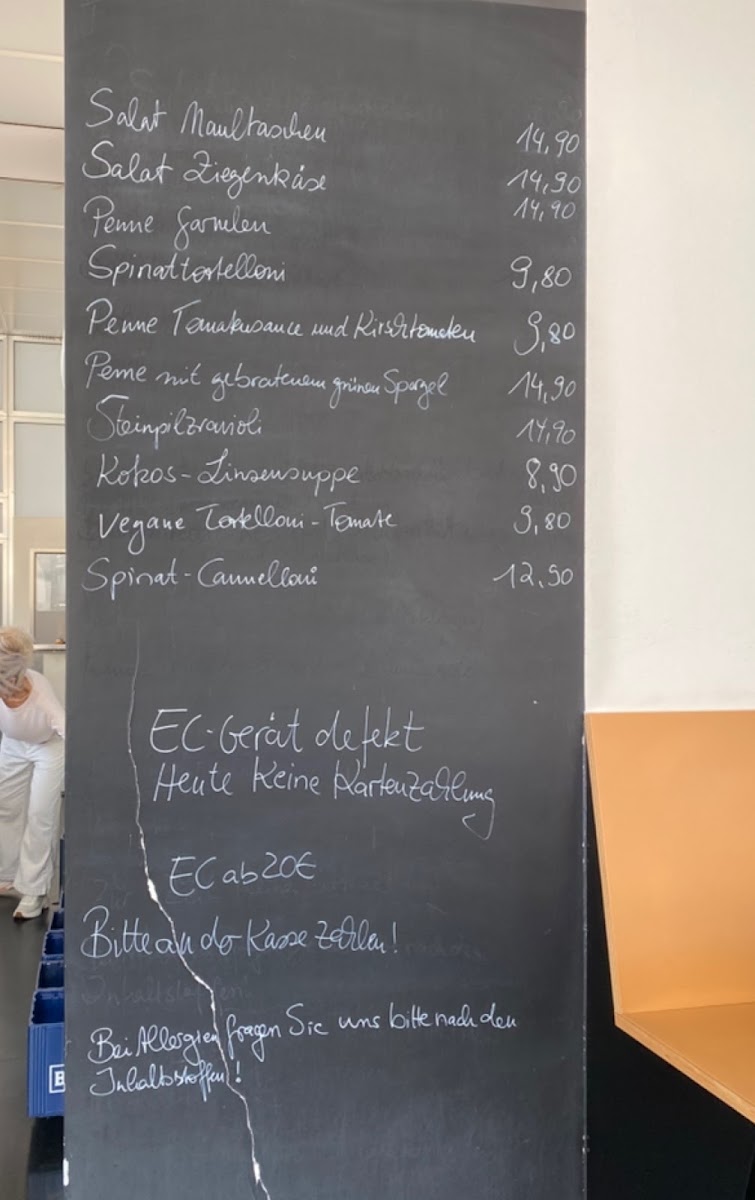 Salat Maultaschen 14,90
Salat Ziegenkäse 14,90
Penne Garnelen 14,90
Spinattortelloni 9,80
Penne Tomatensauce und Kirschtomaten 9,80
Penne mit gebratenem grünen Spargel 14,90
Steinpilzravioli 14,90
Kokos-Linsensuppe 8,90
Vegane Tortelloni-Tomate 9,80
Spinat-Cannelloni 12.90
EC-Gerät defekt
Heute Keine Kartenzahlung
EC ab 20€
Bitte an der Kasse zahlen!
Bei Allergien fragen Sie uns bitte nach den
Inhaltsstoffen!
B